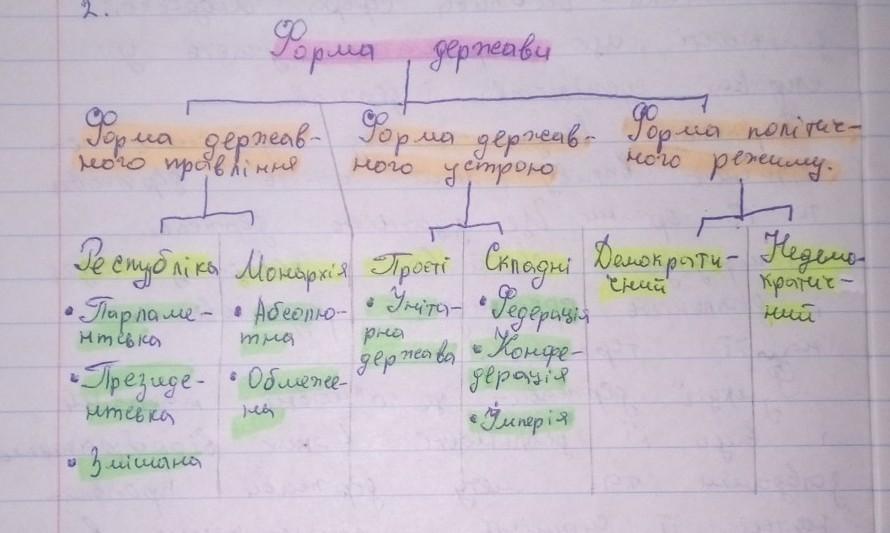 2.
Форма держави
Форма держав-
ного правління
Форма держав-
ного устрою
Форма політич-
ного режиму.
Республіка
• Парламе-
нтська
• Президе-
нтська
• Змішана
Монархія
• Абсолю-
тна
• Обмеже-
на
Прості
• Уніта-
рна
держава
Складні
• Федерація
• Конфе-
дерація
• Імперія
Демократи-
чний
Недемо-
кратич-
ний